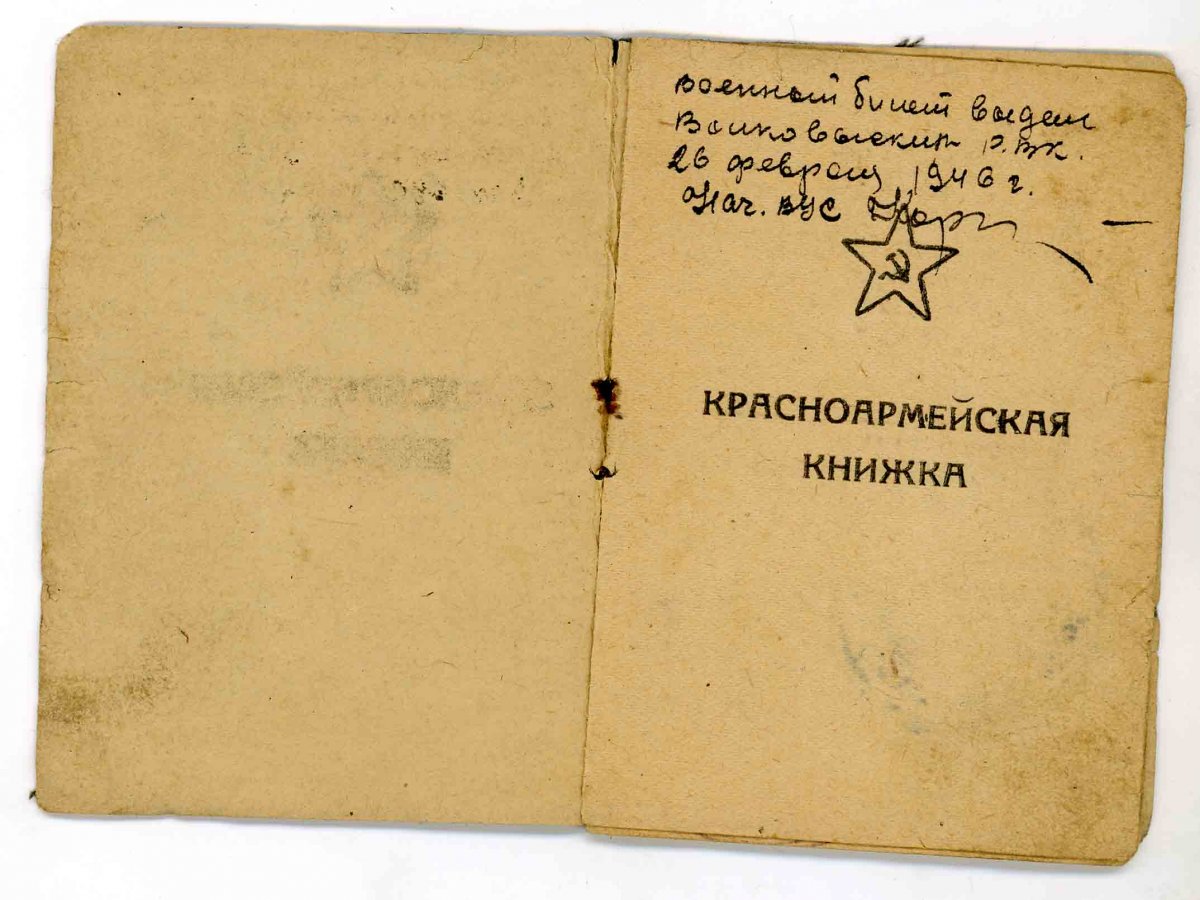 военный билет выдан
Волковыским Р.ВК.
26 февраля 1946 г.
Нач. ВУС
КРАСНОАРМЕЙСКАЯ
КНИЖКА